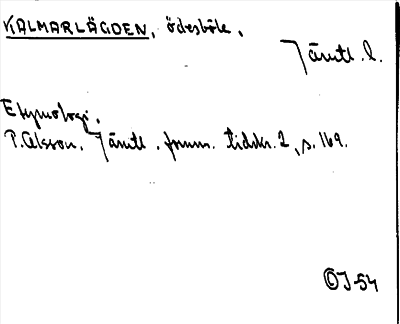 KALMARLÄGDEN, ödesböle.
Jämtl. l.
Etymologi.
P. Olsson. Jämtl. fornm. tidskr. 2, s. 169.
ÖJ-54